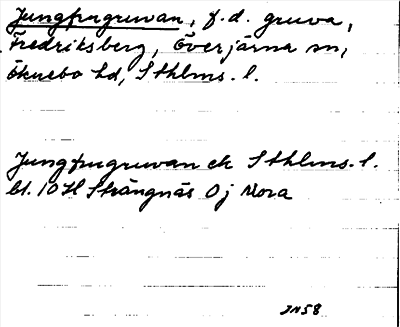 Jungfrugruvan, f.d. gruva,
Fredriksberg, Överjärna sn,
Öknebo hd, Sthlms. l.
Jungfrugruvan ek Sthlms. l.
bl. 10H Strängnäs 0j Mora
JN58